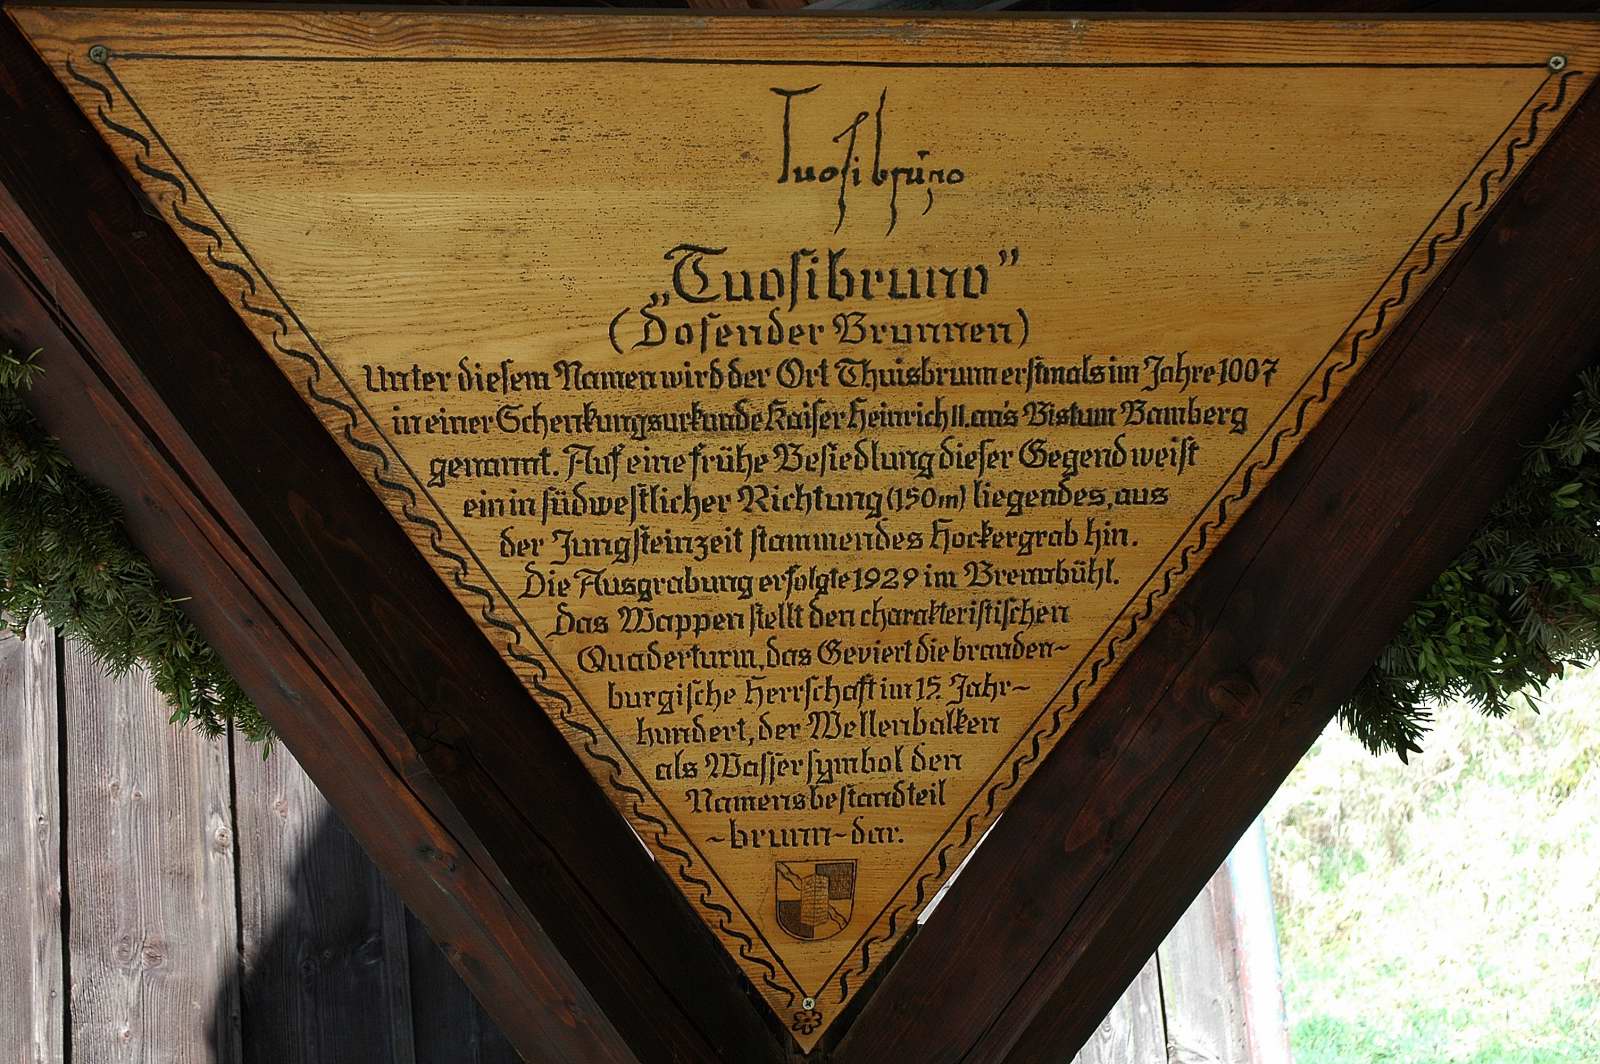 Tuosibruno
„Tuosibruno”
(Dosender Brunnen)
Unter diesem Namen wird der Ort Thuisbrunn erstmals im Jahre 1007
in einer Schenkungsurkunde Kaiser Heinrich II. an's Bistum Bamberg
genannt. Auf eine frühe Besiedlung dieser Gegend weist
ein in südwestlicher Richtung (150m) liegendes, aus
der Jungsteinzeit stammendes Hockergrab hin.
Die Ausgrabung erfolgte 1929 im Brennbühl.
Das Wappen stellt den charakteristischen
Quaderturm, das Geviert die branden-
burgische Herrschaft im 15. Jahr-
hundert, der Wellenbalken
als Wassersymbol den
Namensbestandteil
-brunn- dar.